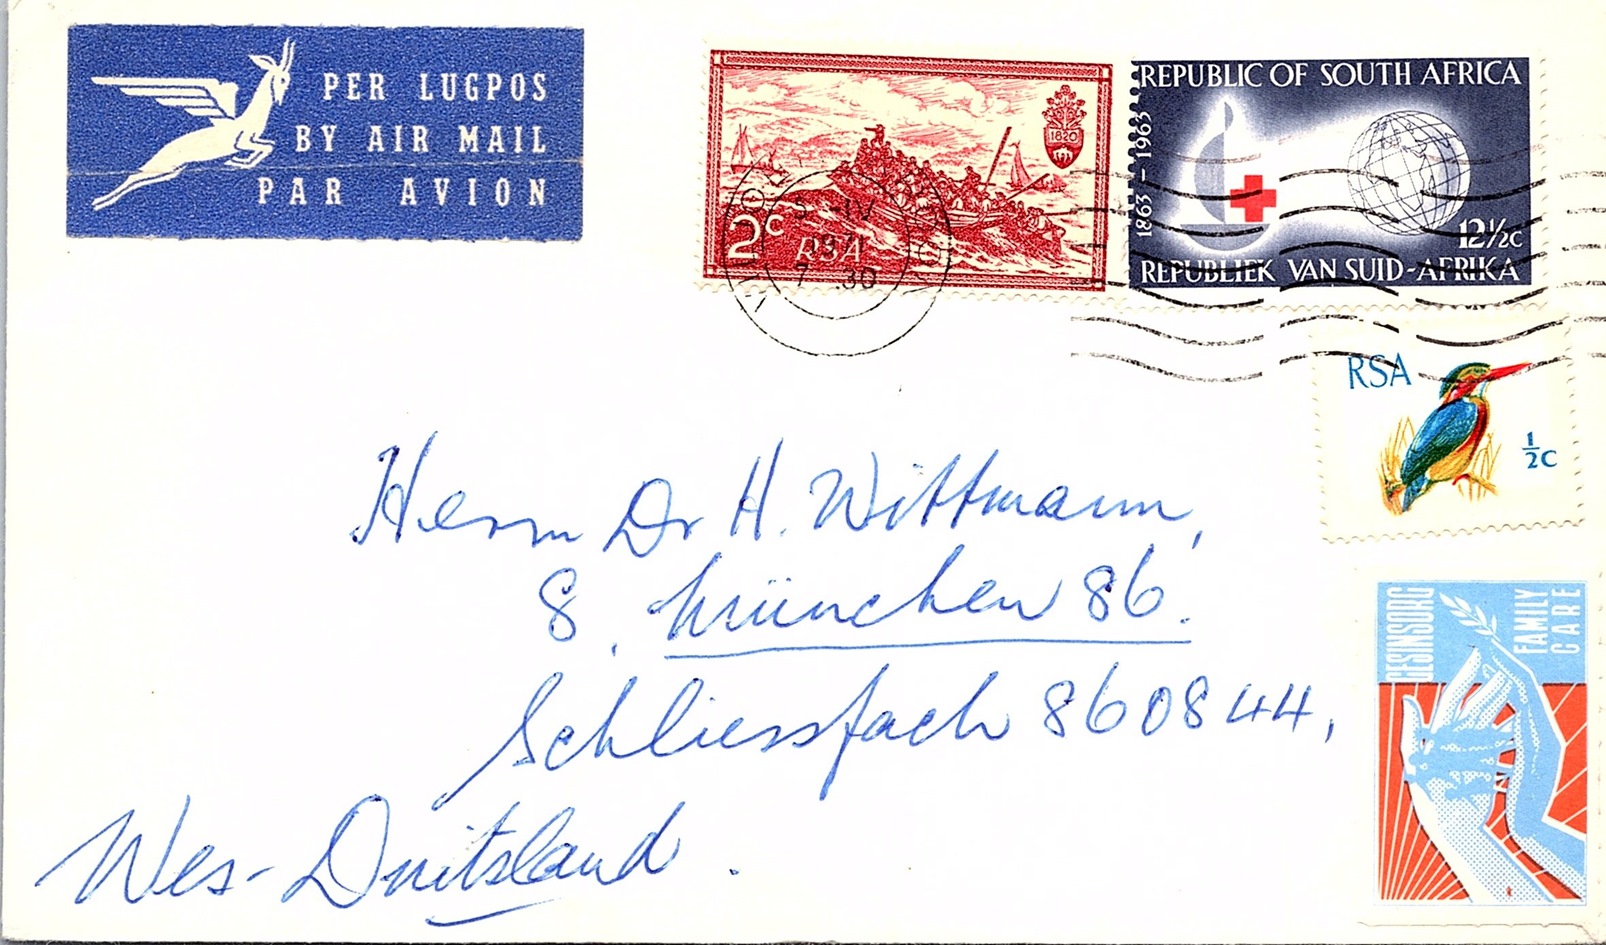 PER LUGPOS
BY AIR MAIL
PAR AVION
1820
2c
RSA
IV
7 .30
REPUBLIC OF SOUTH AFRICA
1863 - 1963
12½c
REPUBLIEK VAN SUID-AFRIKA
RSA
½c
Herrn Dr H. Wittmann,
8, München 86.
Schliessfach 860844,
Wes-Duitsland.
GESINSORG
FAMILY
CARE